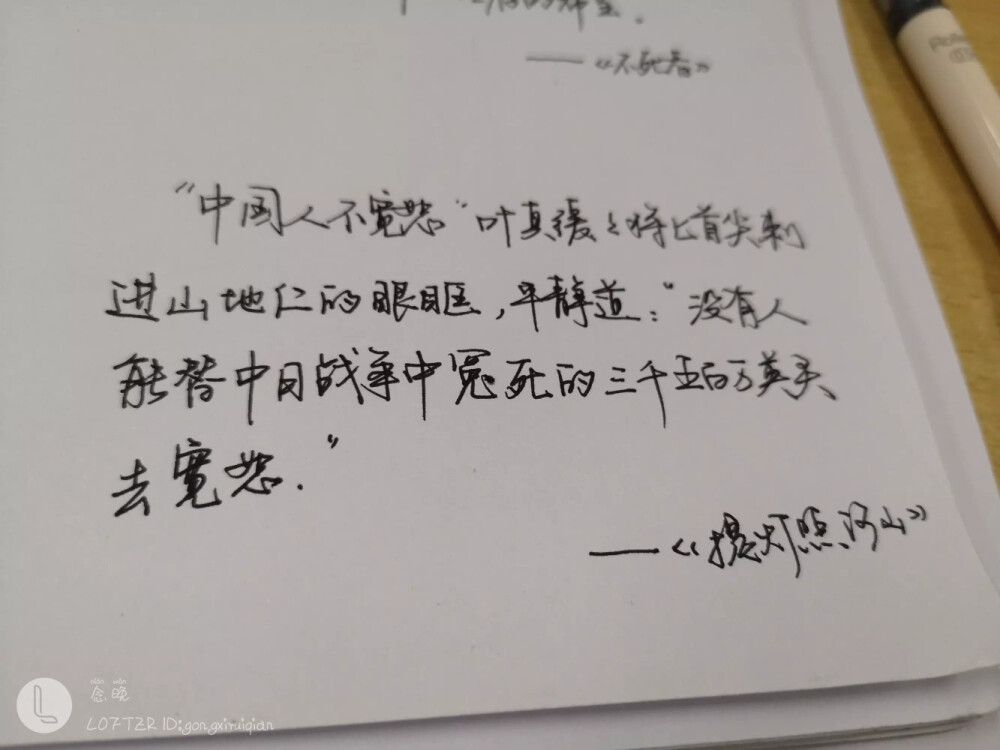 ——《不死者》
“中国人不宽恕”叶真缓缓将匕首尖刺
进山地仁的眼眶,平静道:“没有人
能替中日战争中冤死的三千五百万英灵
去宽恕.”
——《提灯照河山》
LOFTER ID:gongxiruiqian